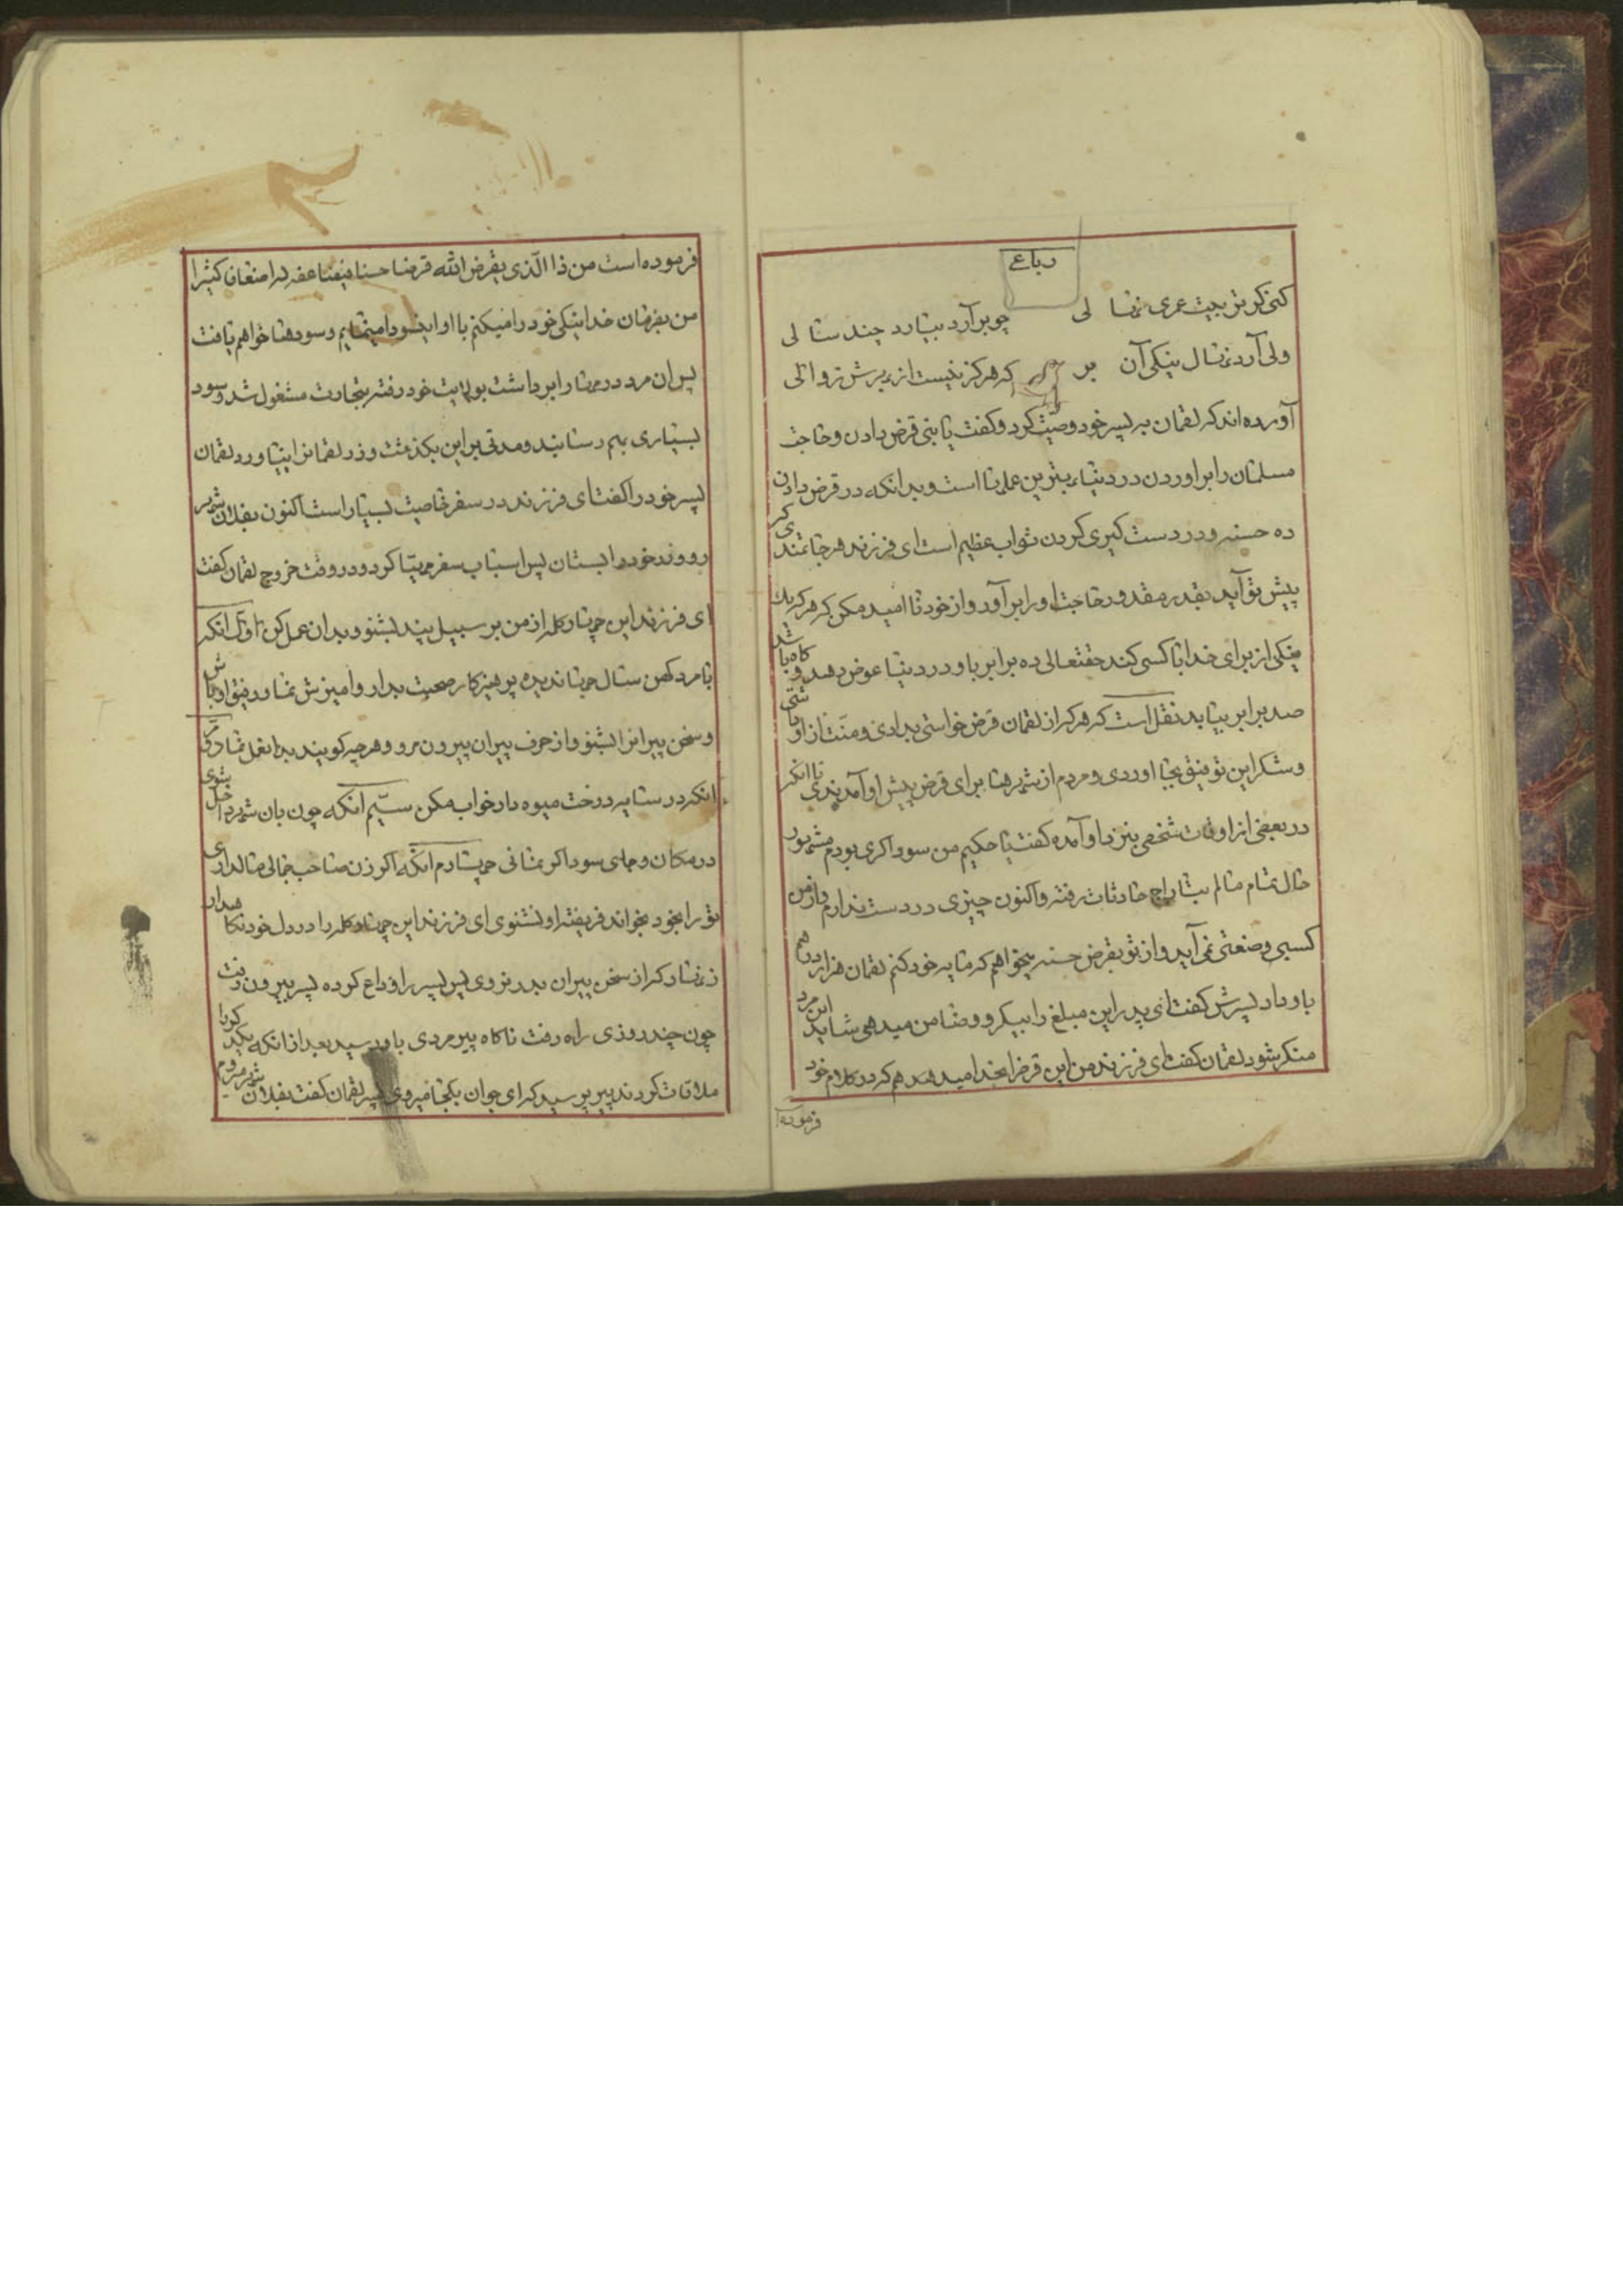 رباعی
کنی کر تربیت عمری نهالی چو بر آرد بیارد چند سالی
ولی آرد نهال نیکی آن بر که هرگز نیست از بهرش زوالی
آورده اند که لقمان به پسر خود وصیت کرد و کفت یا بنی قرض دادن و حاجت
مسلمان را بر اوردن در دنیا بهترین عملها است و بدانکه در قرض دادن
ده حسنه و در دست کیری کردن ثواب عظیم است ای فرزند هر حاجتمندی کر
پیش تو آید بقدر مقدور حاجت او را بر آور و از خود نا امید مکن که هر که یك
نیکی از برای خدا با کسی کند حقتعالی ده برابر باو در دنیا عوض دهد و کاه باشد
صد برابر بیابد نقل است که هر که از لقمان قرض خواستی بدادی و منت از او داشتی
و شکر این توفیق بجا اوردی و مردم از شهرها برای قرض پیش او آمدندی تا انکه
در بعضی از اوقات شخصی بنزد او آمده کفت یا حکیم من سوداکری بودم مشهور
حال تمام مالم بتاراج حادثات رفته و اکنون چیزی در دست ندارم و از من
کسبی و صنعتی نمی آید و از تو بقرض حسنه میخواهم که مایه خود کنم لقمان هزار درهم
باو داد پسرش کفت ای پدر این مبلغ را بیکرو و ضامن میدهی شاید این مرد
منکر شود لقمان کفت ای فرزند من این قرض را بخدا میدهم که در کلام خود
فرموده
فرموده است من ذا الّذی یقرض الله قرضا حسنا فیضاعفه له اضعافا کثیرا
من بفرمان خدا نیکی خود را میکنم با او این سودا مینمایم و سودها خواهم یافت
پس ان مرد درمها را برداشت بولایت خود رفته بتجارت مشغول شد و سود
بسیاری بهم رسانید و مدتی بر این بکذشت و زر لقمانرا نیاورد لقمان
پسر خود را کفت ای فرزند در سفر خاصیت بسیار است اکنون بفلان شهر
رو و زر خود را بستان پس اسباب سفر مهیا کرد و در وقت خروج لقمان کفت
ای فرزند این چهار کلمه از من بر سبیل پند بشنو و بدان عمل کن اوّل انکه
با مرد کهن سال جهاندیده پرهیزکار صحبت بدار و امیزش نما و رفیق او باش
و سخن پیرانرا بشنو و از حرف پیران بیرون مرو و هر چه کویند بدان عمل نما دیکر
انکه در سایه درخت میوه دار خواب مکن سیّم آنکه چون بان شهر داخل شوی
در مکان و جای سوداکر نمانی چهارم آنکه اکر زن صاحب جمالی مالداری
تو را بخود بخواند فریفته او نشوی ای فرزند این چهار کلمه را در دل خود نکاهدار
زنهار که از سخن پیران بدر نروی پس پسر را وداع کرده پسر بیرون رفت
چون چند روزی راه رفت ناکاه پیر مردی باو رسید بعد از انکه یکدیکر را
ملاقات کردند پیر پرسید که ای جوان بکجا میروی پسر لقمان کفت بفلان شهر میروم